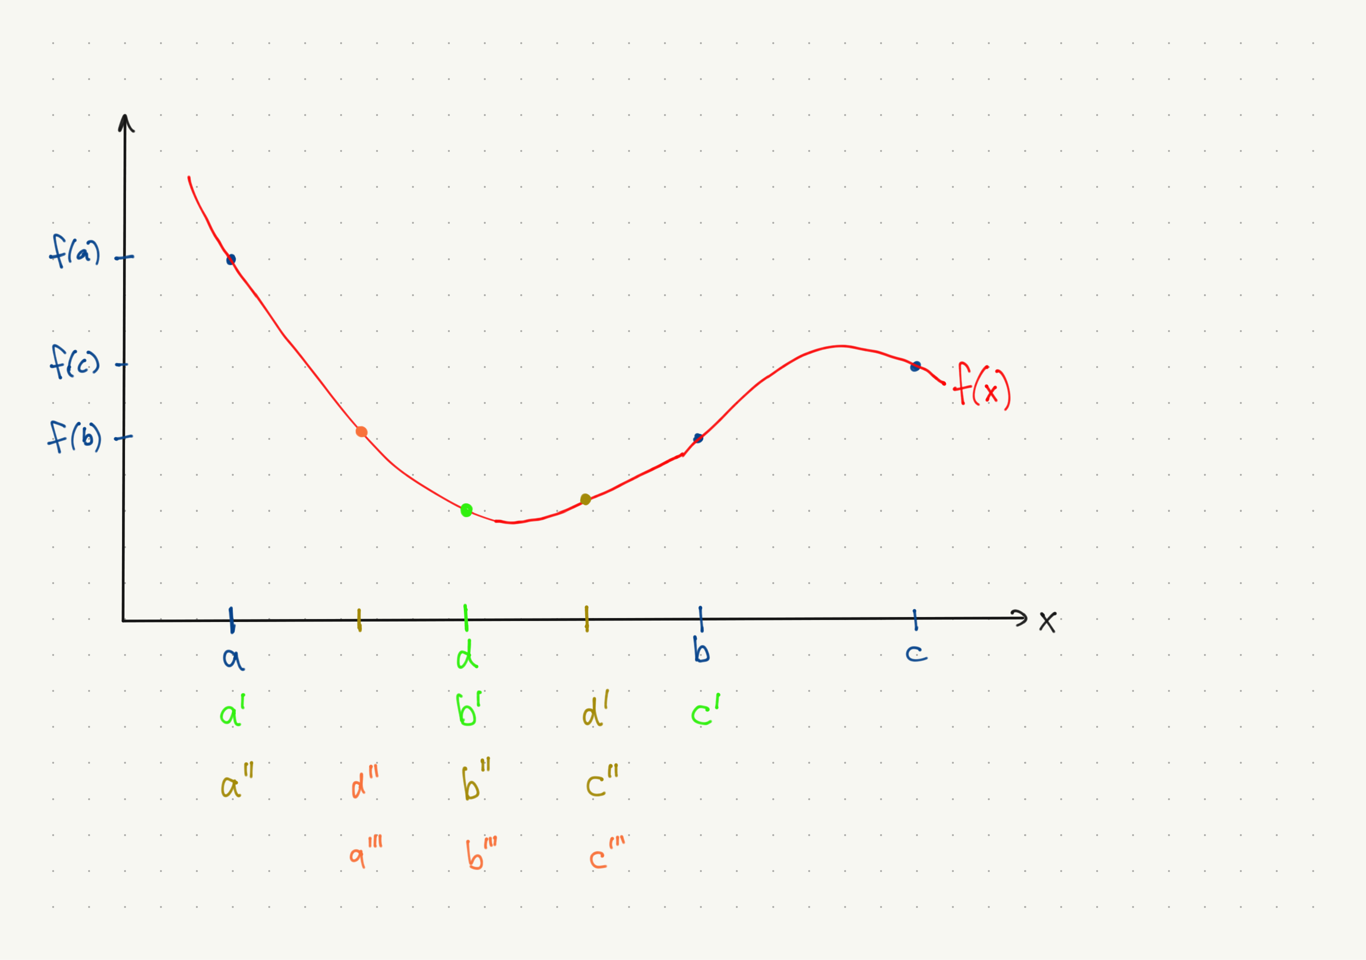 f(a)
f(c)
f(x)
f(b)
x
a d b c
a' b' d' c'
a'' d'' b'' c''
a''' b''' c'''